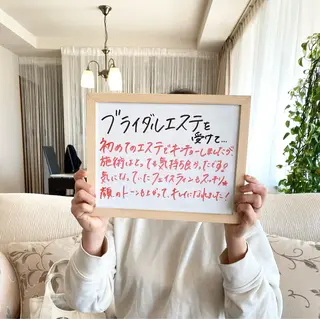 ブライダルエステを
受けて...
初めてのエステでキンチョーしましたが、
施術はとっても気持ち良かったです♡
気になっていたフェイスラインもスッキリ
顔のトーンも上がって、キレイになれました!